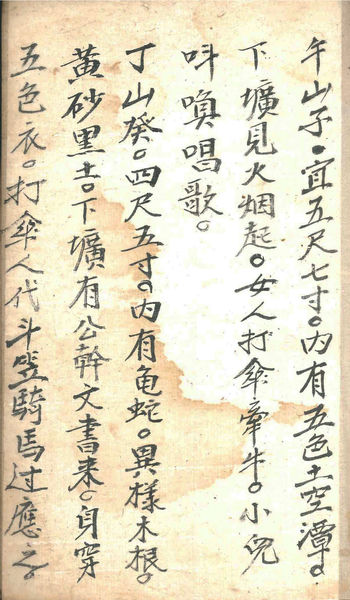 午山子。宜五尺七寸。內有五色土空潭。
下壙見火烟起。女人打傘牽牛。小兒
叫喚唱歌。
丁山癸。四尺五寸。內有龟蛇。異樣木根。
黃砂黑土。下壙有公幹文書来。身穿
五色衣。打傘人代斗笠騎馬过應之。